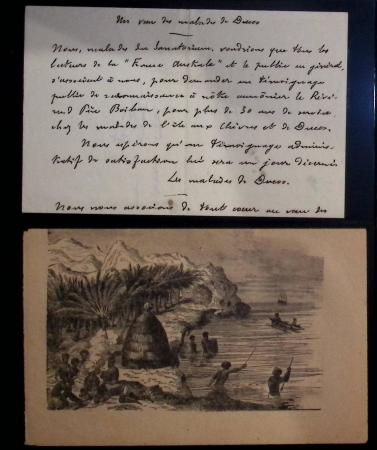 Un vœu des malades de Ducos
Nous, malades du Sanatorium, voudrions que tous les
lecteurs de la "France Australe" et le public en général,
s'associent à nous, pour demander un témoignage
public de reconnaissance à nôtre aumônier le Révé-
rend Père Boileau, pour plus de 30 ans de service
chez les malades de l'île aux Chèvres et de Ducos.
Nous espérons qu'un témoignage adminis-
tratif de satisfaction lui sera un jour décerné.
Les malades de Ducos.
Nous nous associons de tout cœur au vœu des